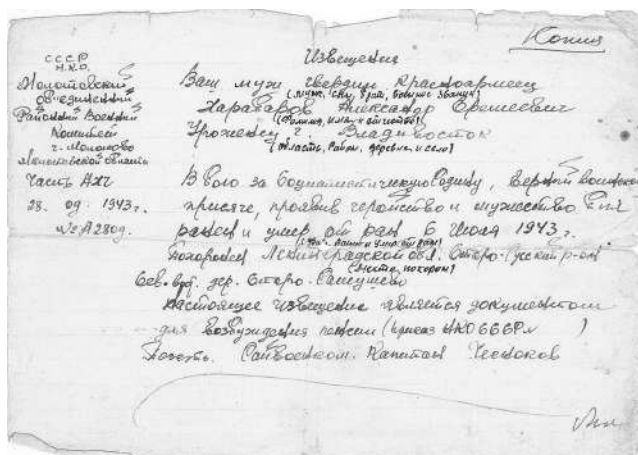 Копия
Извещение
СССР
Н.К.О.
Молотовский
объединенный
Районный Военный
Комитет
г. Молотово
Молотовской области
Часть АХЧ
28. 09 1943г.
№А2809.
Ваш муж гвардии красноармеец
(муж, сын, брат, военное звание)
Александр
(Фамилия, имя и отчество)
Уроженец г. Владивосток
(область, район, деревня и село)
В бою за Социалистическую Родину, верный воинской
присяге, проявив геройство и мужество был
ранен и умер от ран 6 Июля 1943 г.
Похоронен Ленинградской обл. Старо-Русский р-он
(место похорон)
дер. Старо-
настоящее извещение является документом
для возбуждения пенсии (приказ НКО )
Печать. Райвоенком. Капитан Чесноков